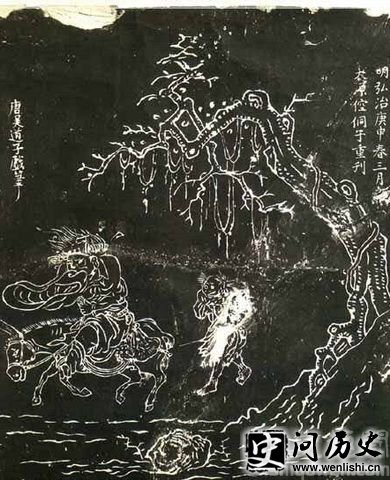 明弘治庚申春二月
太原倥侗子重刊
唐吳道子戲筆
问历史
www.wenlishi.cn